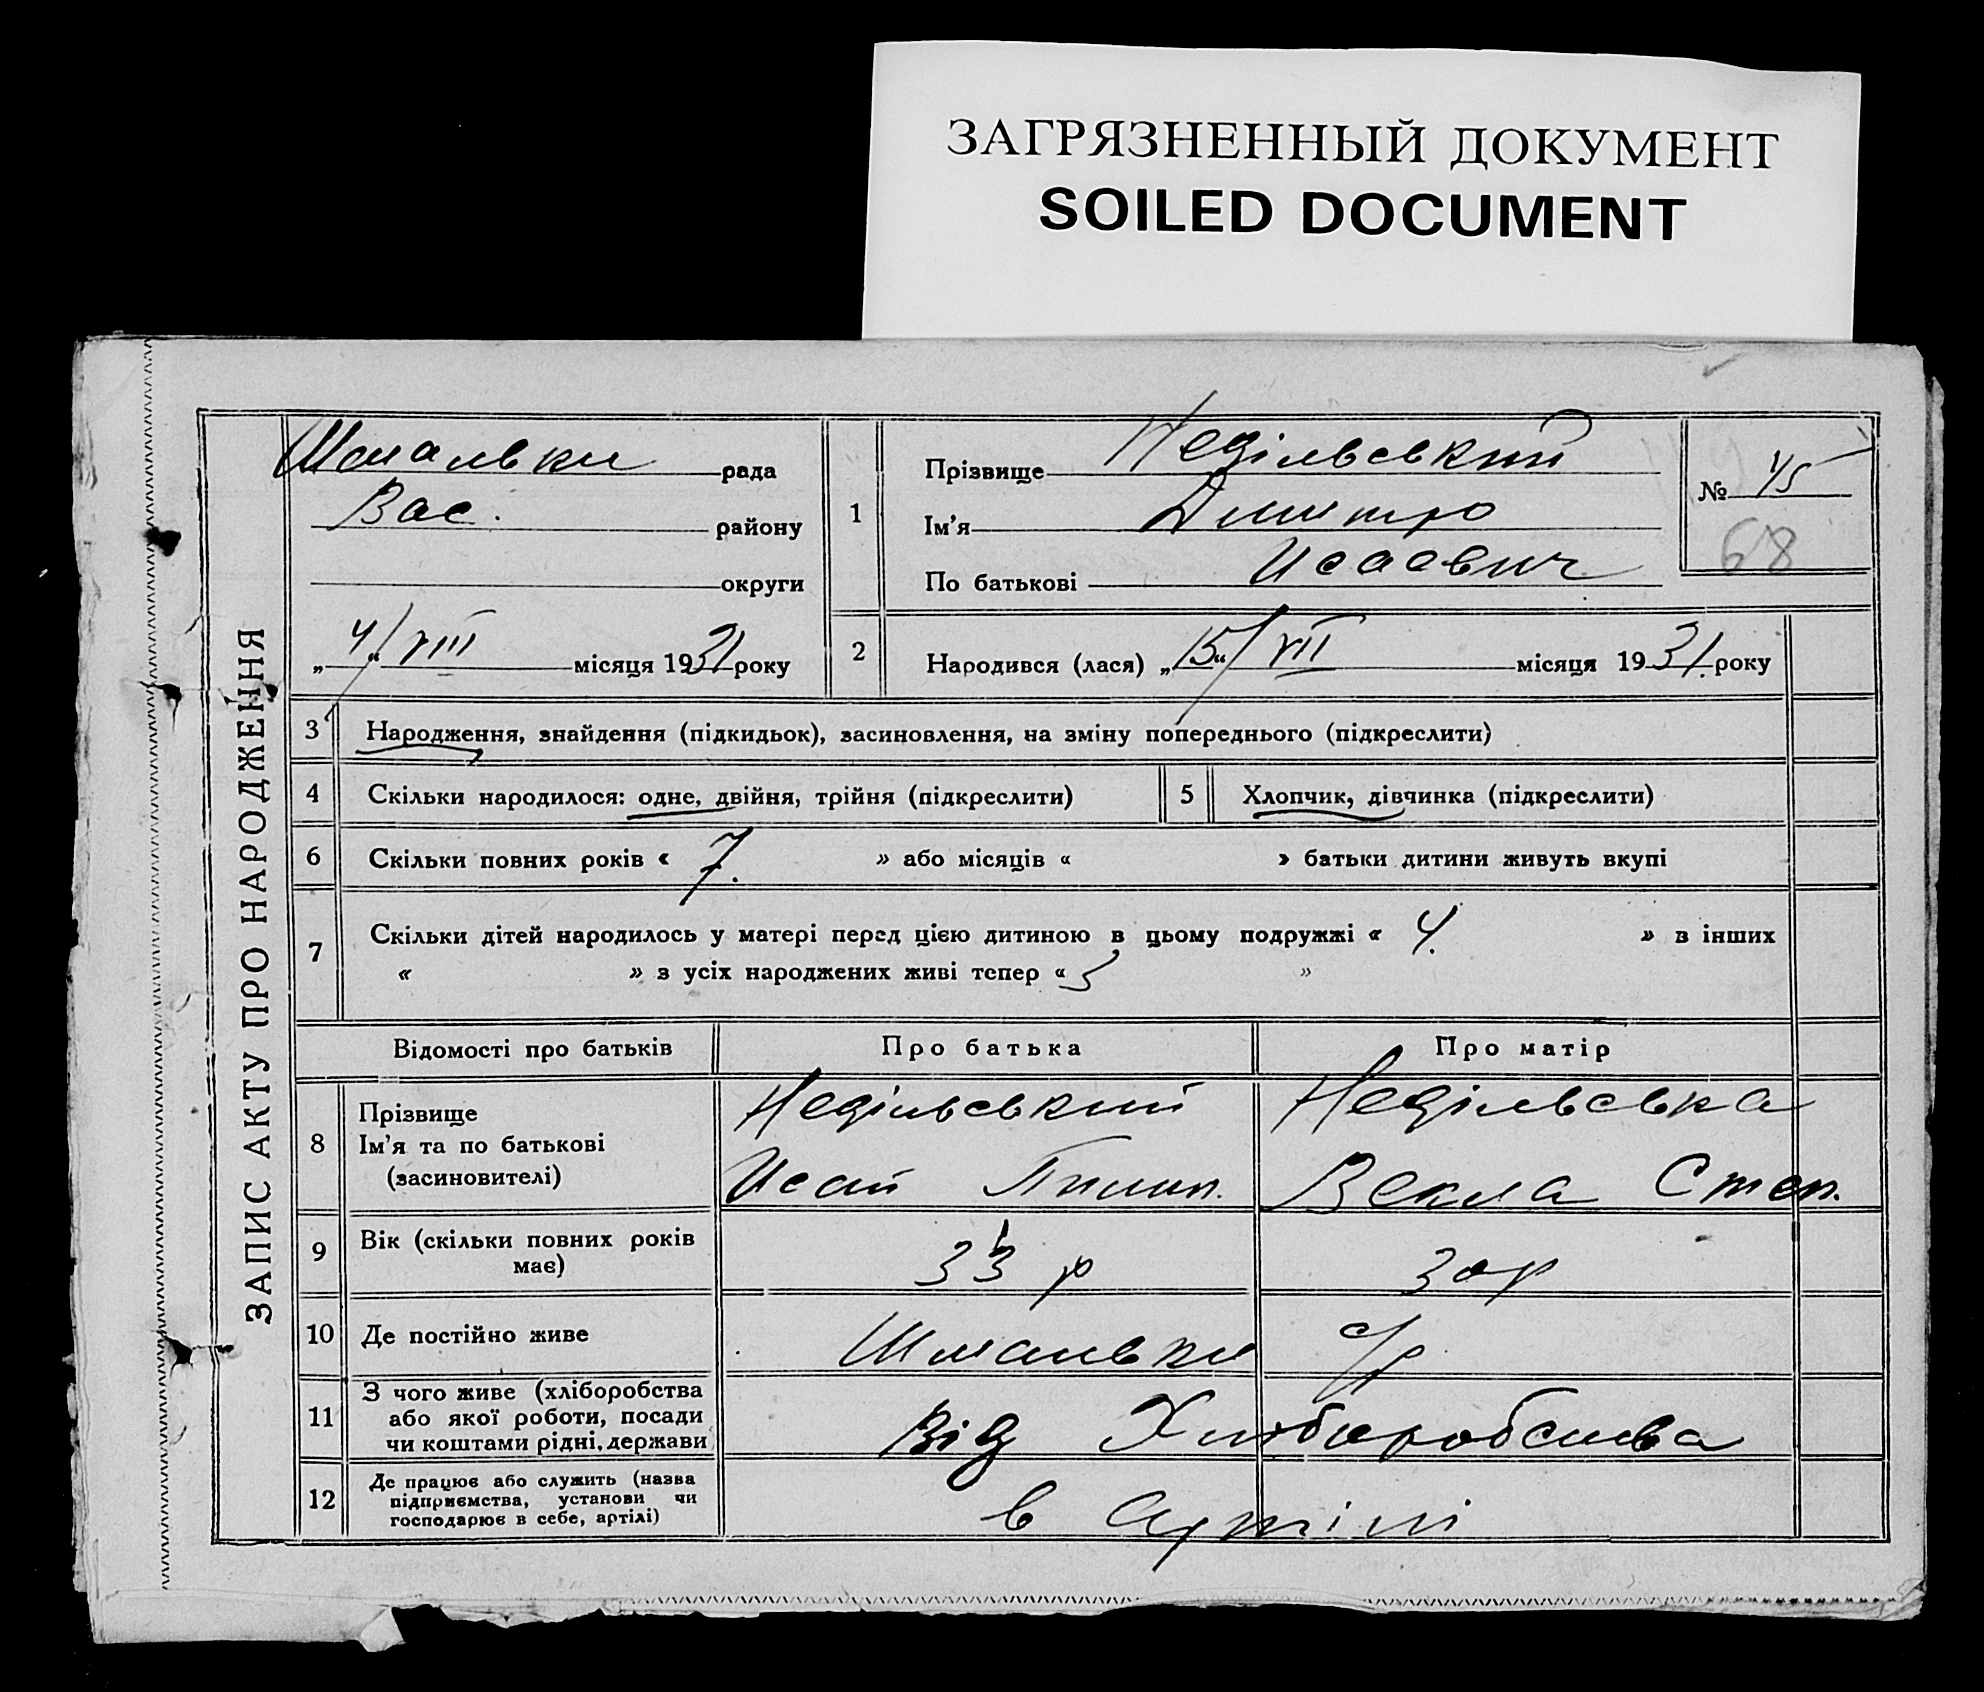 ЗАГРЯЗНЕННЫЙ ДОКУМЕНТ
SOILED DOCUMENT
ЗАПИС АКТУ ПРО НАРОДЖЕННЯ
Шмальки рада
Вас. району
округи
„4“ VIII місяця 1931 року
1
Прізвище Недільський
Ім'я Дмитро
По батькові Исаевич
№ 45
68
2 Народився (лася) „15“ VII місяця 1931. року
3 Народження, знайдення (підкидьок), засиновлення, на зміну попереднього (підкреслити)
4 Скільки народилося: одне, двійня, трійня (підкреслити) 5 Хлопчик, дівчинка (підкреслити)
6 Скільки повних років « 7. » або місяців « » батьки дитини живуть вкупі
7 Скільки дітей народилось у матері перед цією дитиною в цьому подружжі « 4. » в інших
« » з усіх народжених живі тепер « 3 »
Відомості про батьків Про батька Про матір
8 Прізвище
Ім'я та по батькові
(засиновителі)
Недільський
Исай Пилип.
Недільська
Векла Степ.
9 Вік (скільки повних років має) 33 р 30 р
10 Де постійно живе Шмальки с/р
11 З чого живе (хліборобства
або якої роботи, посади
чи коштами рідні, держави
Від Хліборобства
12 Де працює або служить (назва
підприємства, установи чи
господарює в себе, артілі)
в артілі